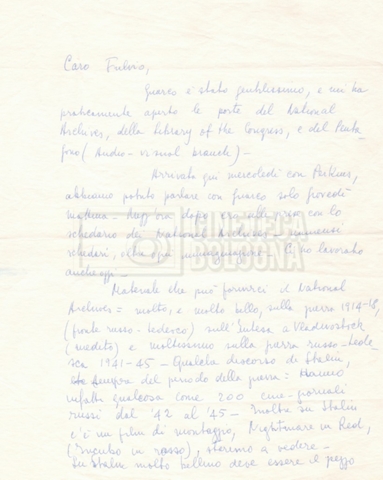 Caro Fulvio,
Guarco è stato gentilissimo, e mi ha
praticamente aperto le porte del National
Archives, della Library of the Congress, e del Penta-
gono (Audio-visual branch) -
Arrivato qui mercoledì con Perkins,
abbiamo potuto parlare con Guarco solo giovedì
mattina - dopo ero con lo
schedario dei National Archives, immensi
schedari, oltre ogni immaginazione. Ci ho lavorato
anche oggi -
Materiale che può fornirci il National
Archives = molto, e molto bello, sulla guerra 1914-18,
(fronte russo-tedesco) sull'Intesa a Vladivostock
(inedito) e moltissimo sulla guerra russo-tede
sca 1941-45 - Qualche discorso di Stalin,
sempre del periodo della guerra: Hanno
infatti qualcosa come 200 cine-giornali
russi dal '42 al '45 - Inoltre su Stalin
c'è un film di montaggio, Nightmare in Red,
(Incubo in rosso), staremo a vedere -
Su Stalin molto bellino deve essere il pezzo
CINETECA
BOLOGNA